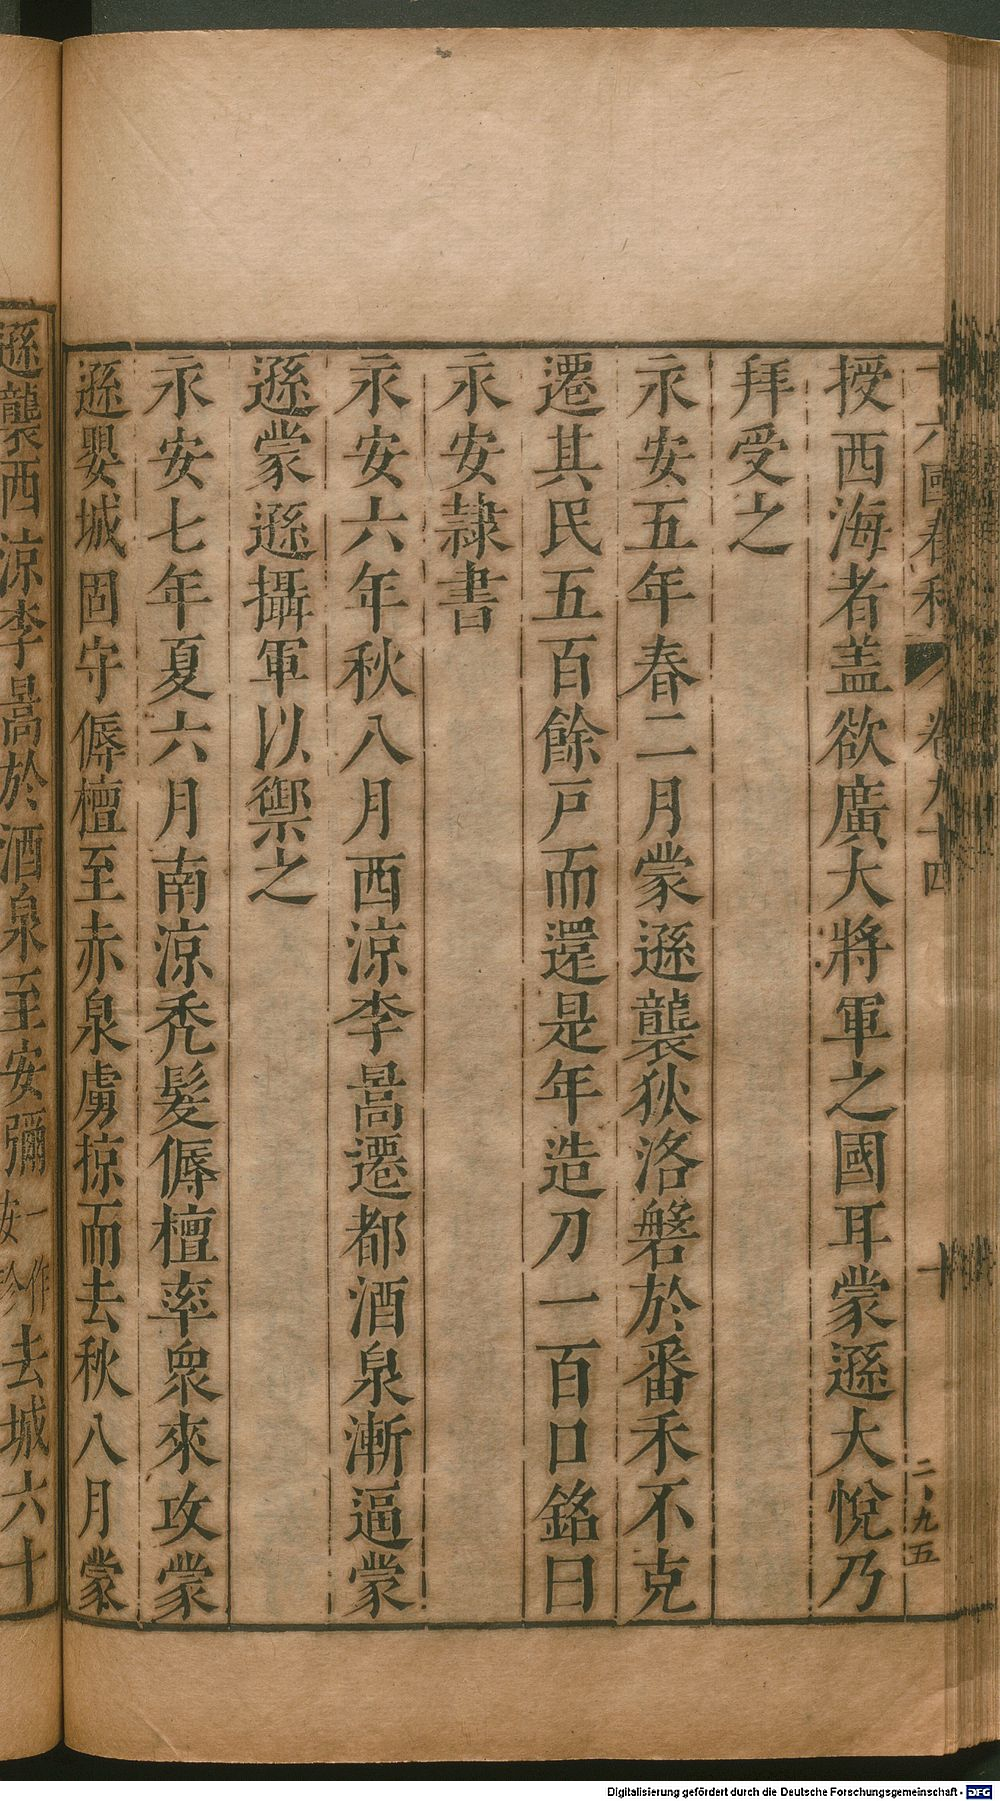 十六國春秋 卷九十四 十
二、九五
授西海者盖欲廣大將軍之國耳蒙遜大悅乃
拜受之
永安五年春二月蒙遜襲狄洛磐於番禾不克
遷其民五百餘戸而還是年造刀一百口銘曰
永安隷書
永安六年秋八月西涼李暠遷都酒泉漸逼蒙
遜蒙遜攝軍以禦之
永安七年夏六月南涼禿髮傉檀率衆來攻蒙
遜嬰城固守傉檀至赤泉虜掠而去秋八月蒙
遜襲西涼李暠於酒泉至安彌一作安珍去城六十
Digitalisierung gefördert durch die Deutsche Forschungsgemeinschaft - DFG